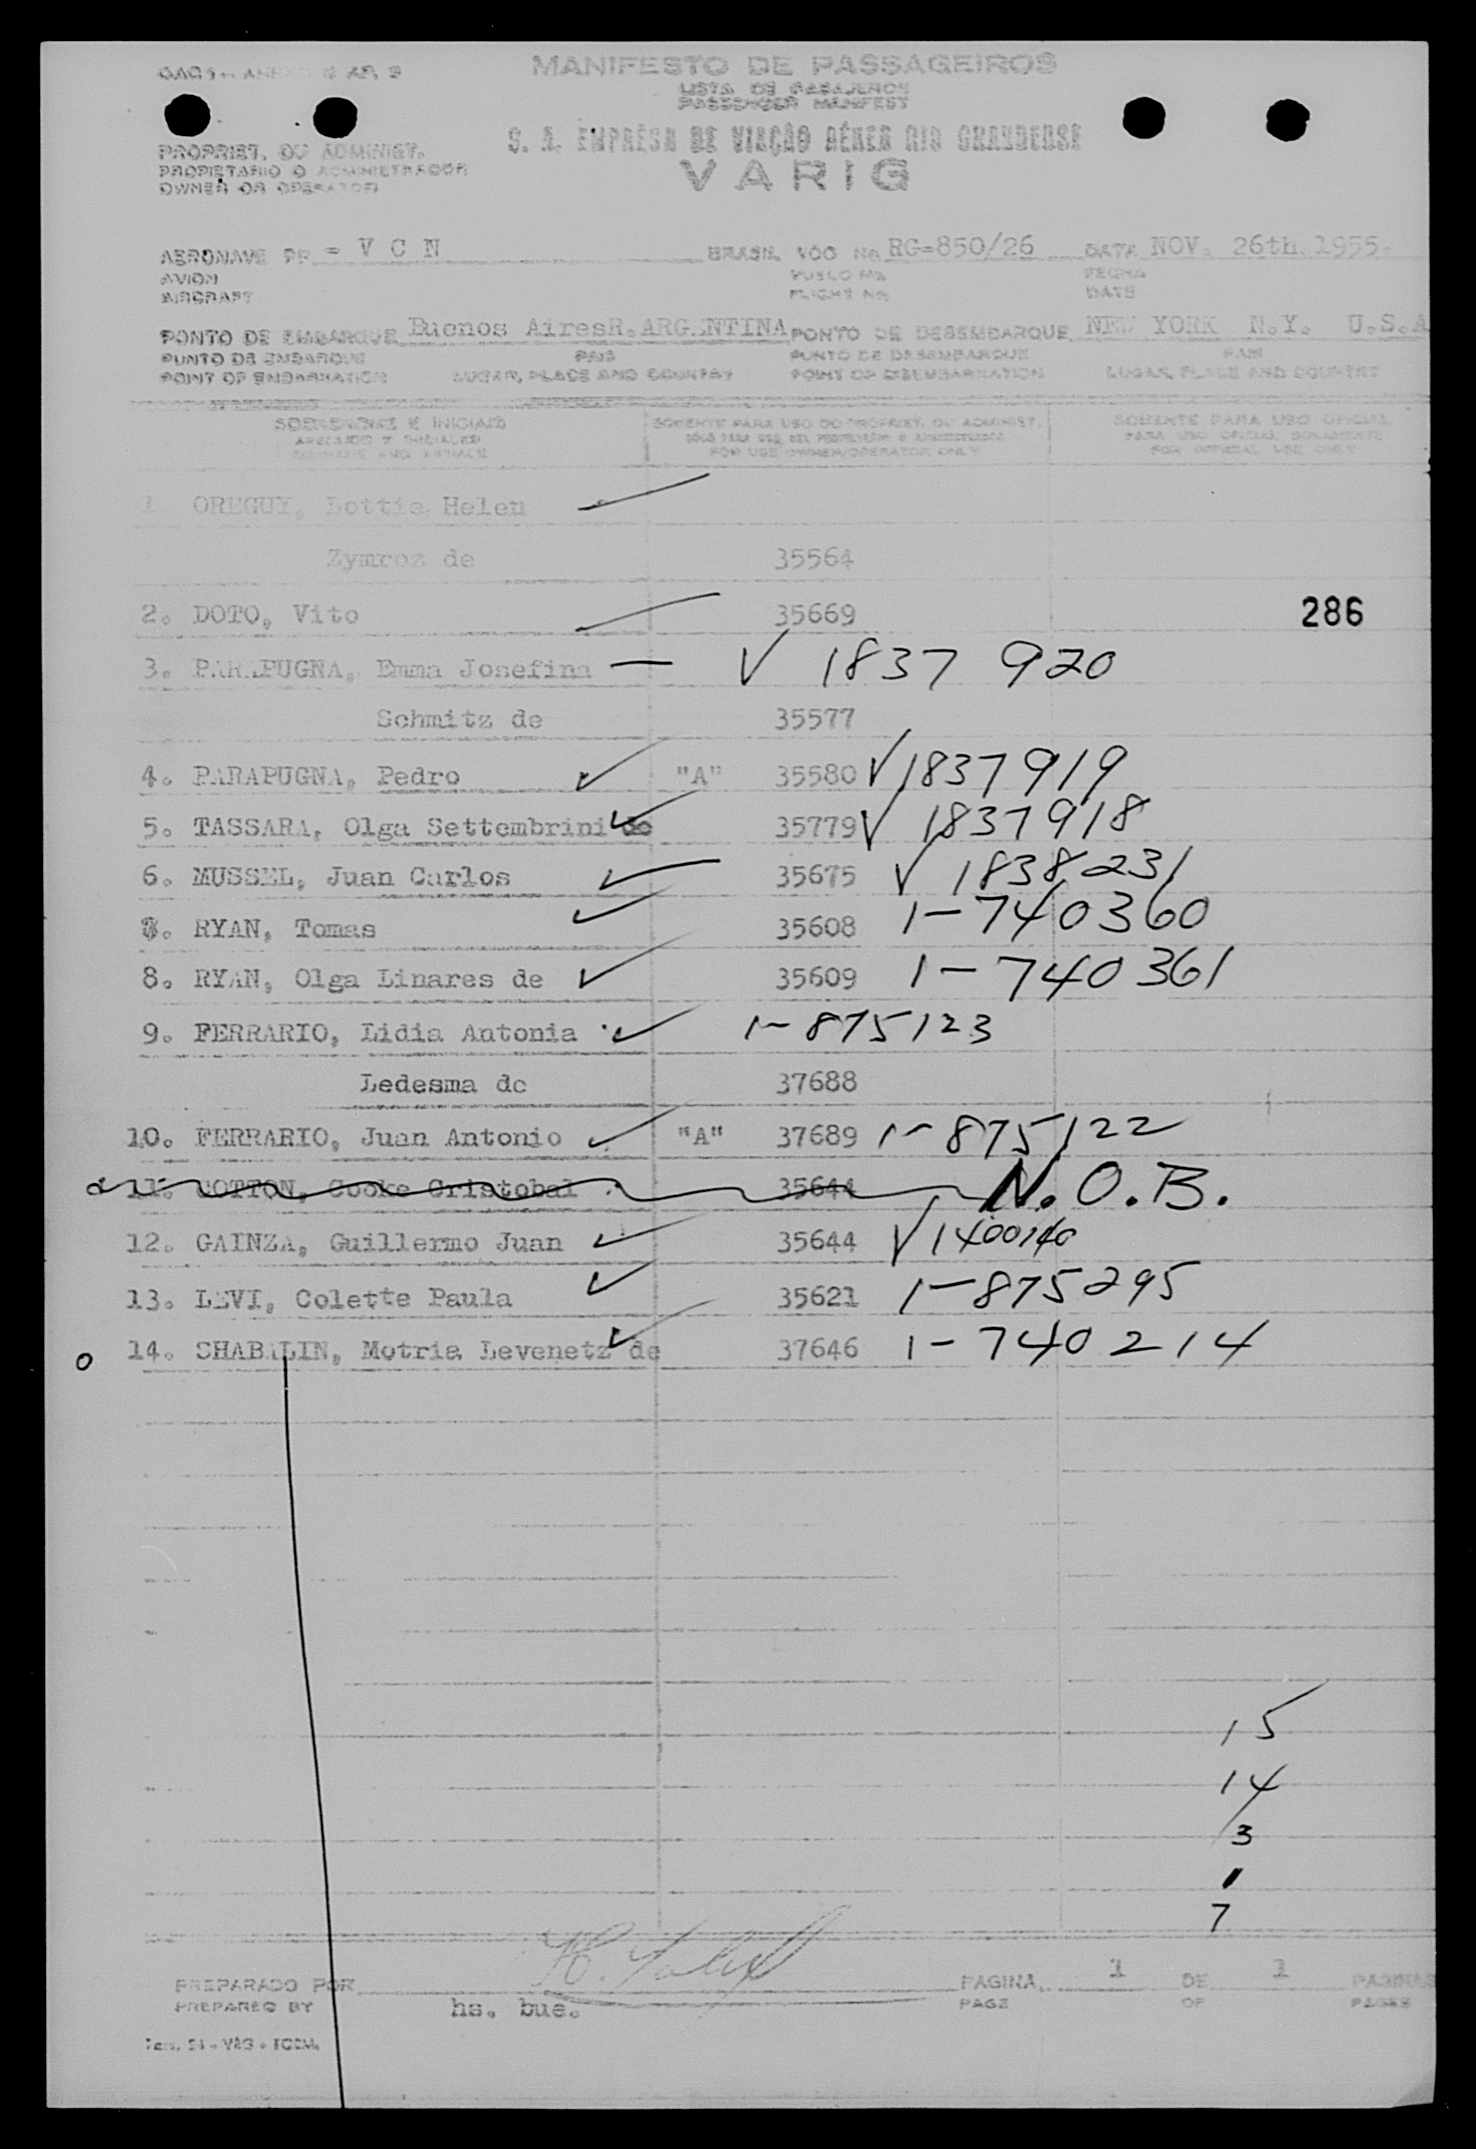 MANIFESTO DE PASSAGEIROS
LISTA DE PASAJEROS
PASSENGER MANIFEST
S. A. EMPRÊSA DE VIAÇÃO AÉREA RIO GRANDENSE
VARIG
PROPRIET. OU ADMINIST.
PROPIETARIO O ADMINISTRADOR
OWNER OR OPERATOR
AERONAVE PP = V C N BRASIL VÔO No RG=850/26 DATA NOV. 26th.1955.
AVION VUELO No FECHA
AIRCRAFT FLIGHT No DATE
PONTO DE EMBARQUE Buenos AiresR.ARGENTINA PONTO DE DESEMBARQUE NEW YORK N.Y. U.S.A
PUNTO DE EMBARQUE PAIS PUNTO DE DESEMBARQUE PAIS
POINT OF EMBARKATION LUGAR, PLACE AND COUNTRY POINT OF DISEMBARKATION LUGAR, PLACE AND COUNTRY
SOBRENOMES E INICIAIS SOMENTE PARA USO DO PROPRIET. OU ADMINIST. SOMENTE PARA USO OFICIAL
APELLIDO E INICIALES SÓLO PARA USO DEL PROPIETARIO O ADMINISTRADOR PARA USO OFICIAL SOLAMENTE
SURNAME AND INITIALS FOR USE OWNER/OPERATOR ONLY FOR OFFICIAL USE ONLY
1 OREGUY, Lottie Helen
Zymroz de 35564
2. DOTO, Vito 35669 286
3. PARAPUGNA, Emma Josefina — √ 1837 920
Schmitz de 35577
4. PARAPUGNA, Pedro "A" 35580 √ 1837919
5. TASSARA, Olga Settembrini de 35779 √ 1837918
6. MUSSEL, Juan Carlos 35675 √ 1838231
7. RYAN, Tomas 35608 1-740360
8. RYAN, Olga Linares de 35609 1-740361
9. FERRARIO, Lidia Antonia 1-875123
Ledesma de 37688
10. FERRARIO, Juan Antonio "A" 37689 1-875122
11. COTTON, Cooke Cristobal 35644 N.O.B.
12. GAINZA, Guillermo Juan 35644 √ 1400140
13. LEVI, Colette Paula 35621 1-875295
o 14. SHABALIN, Motria Levenetz de 37646 1-740214
15
14
/3
7
PREPARADO POR PAGINA 1 DE 1 PAGINAS
PREPARED BY hs. bue. PAGE OF PAGES